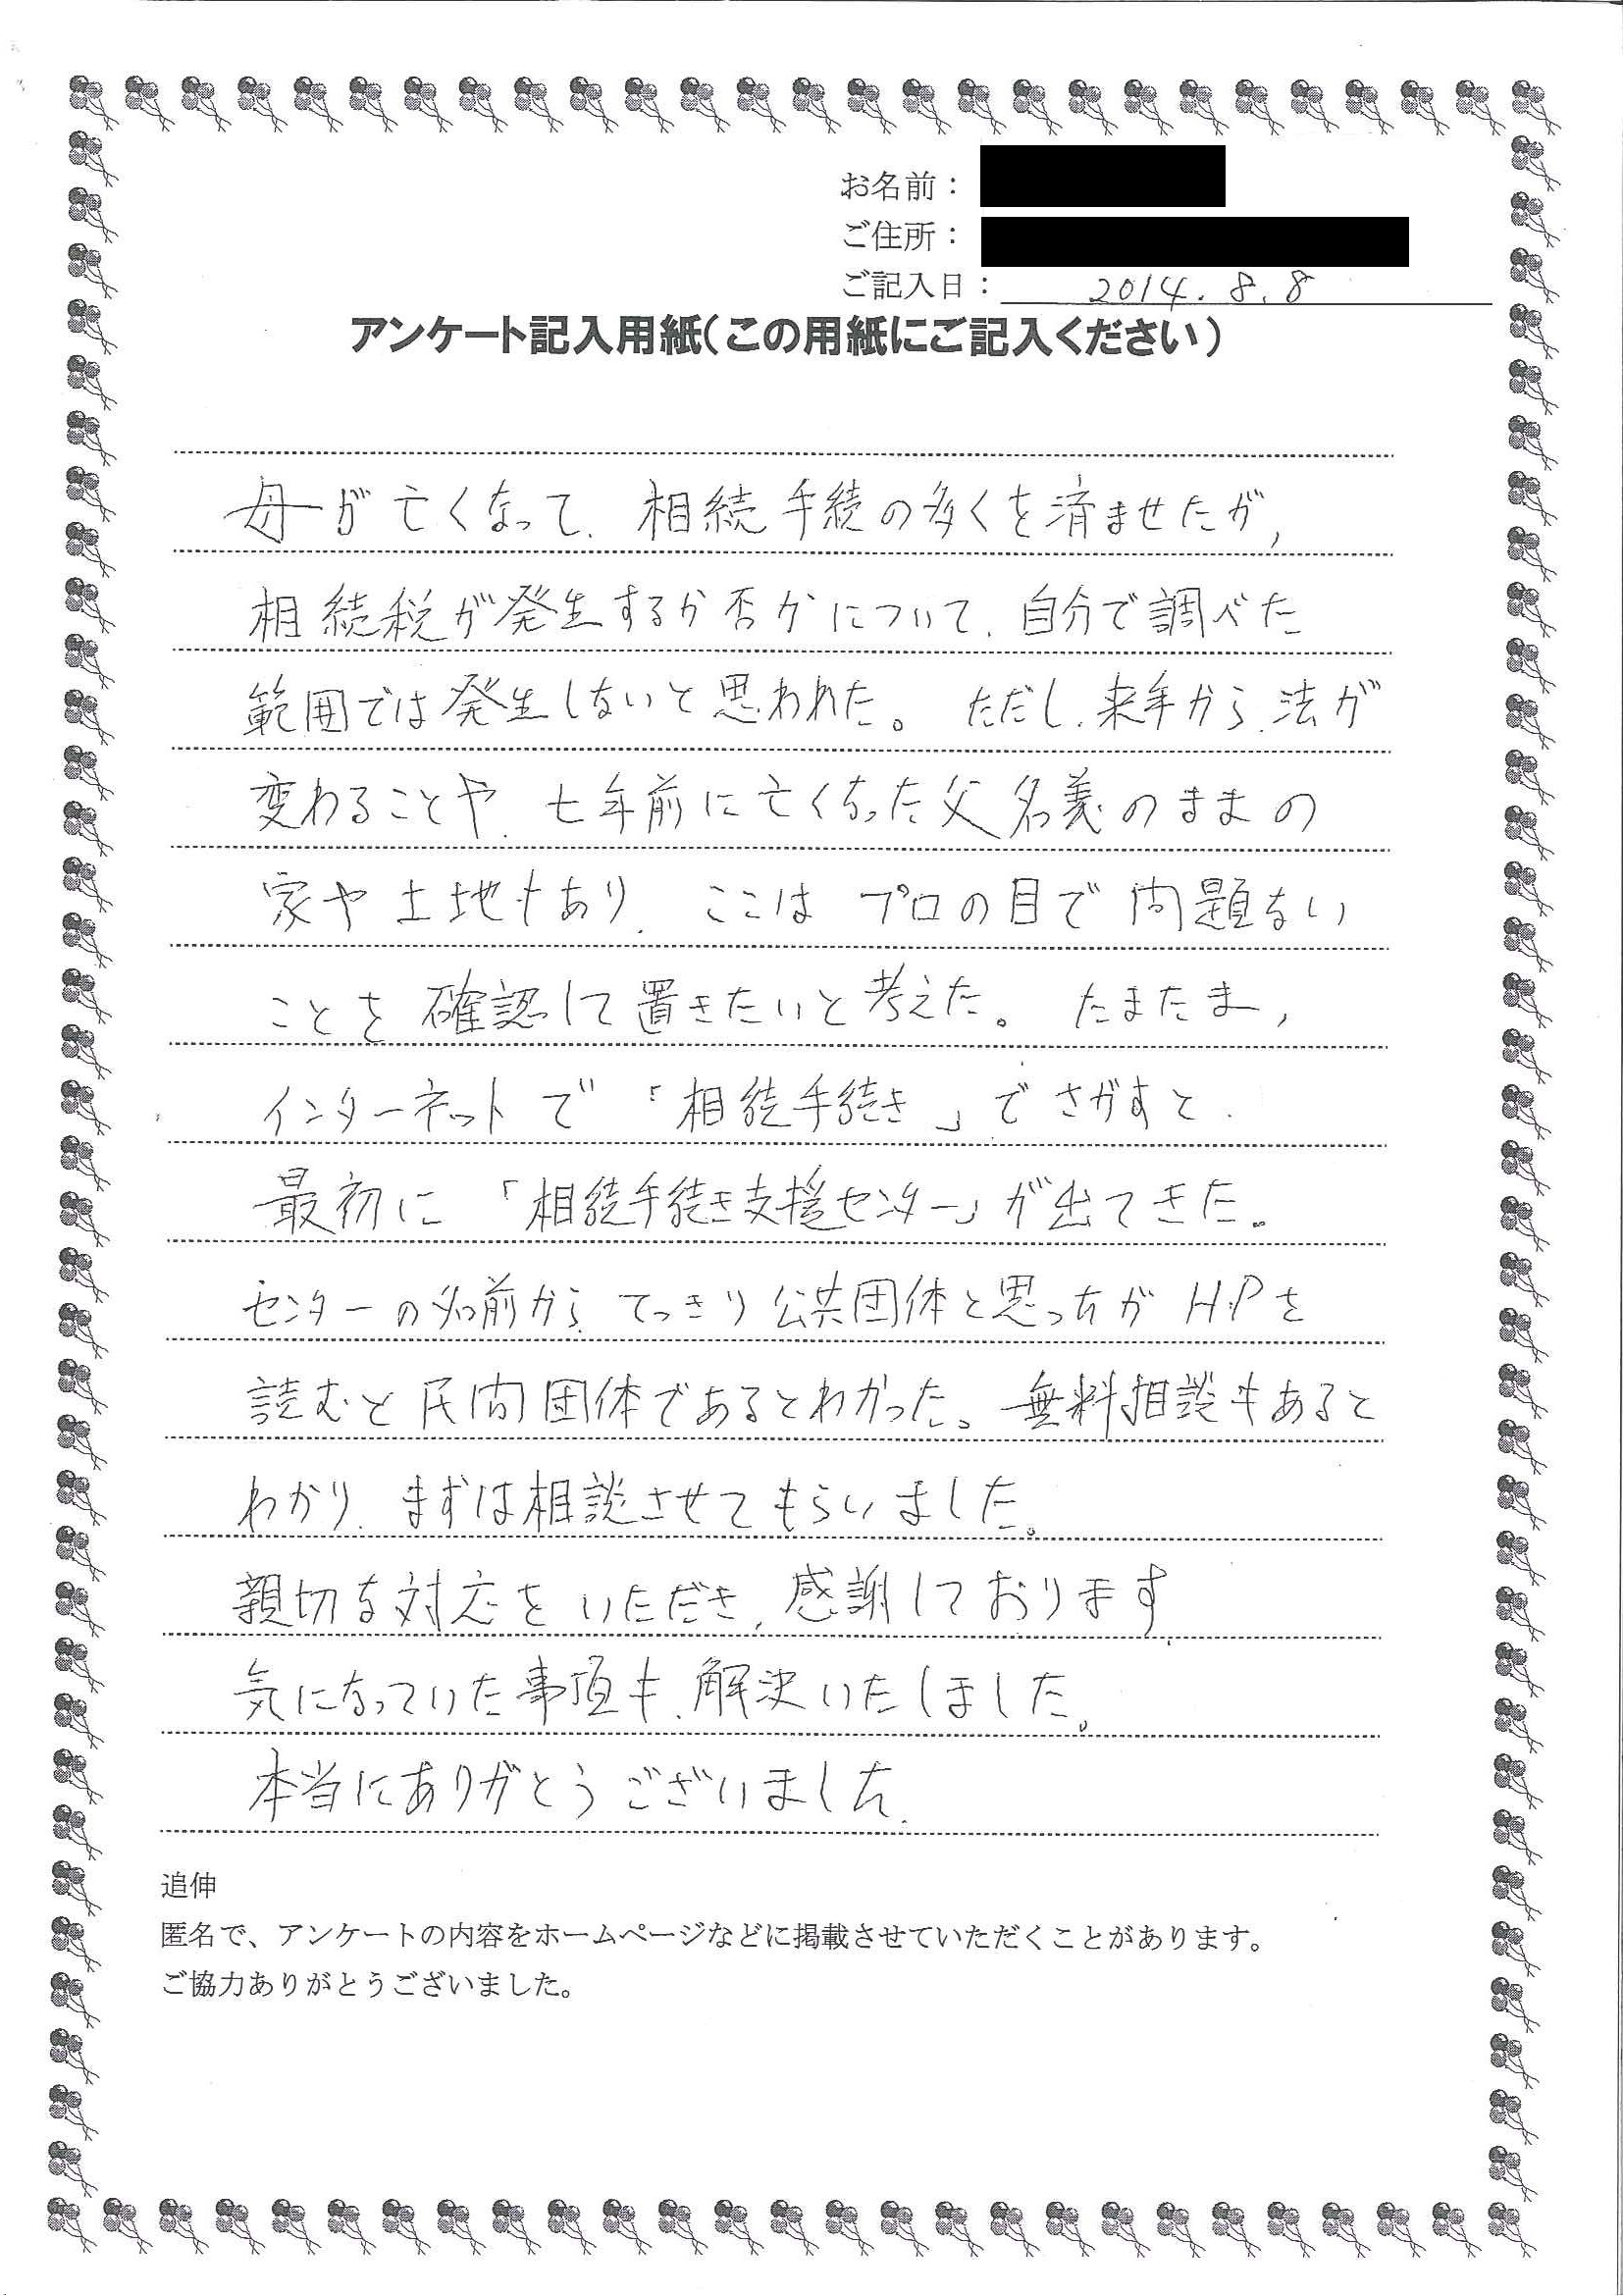 お名前：
ご住所：
ご記入日： 2014.8.8
アンケート記入用紙（この用紙にご記入ください）
母が亡くなって、相続手続の多くを済ませたが、
相続税が発生するか否かについて、自分で調べた
範囲では発生しないと思われた。ただし、来年から、法が
変わることや、七年前に亡くなった父名義のままの
家や土地もあり、ここは プロの目で問題ない
ことを確認して置きたいと考えた。たまたま、
インターネットで「相続手続き」でさがすと、
最初に「相続手続き支援センター」が出てきた。
センターの名前から、てっきり公共団体と思ったが HPを
読むと民間団体であるとわかった。無料相談もあると
わかり、まずは相談させてもらいました。
親切な対応をいただき、感謝しております。
気になっていた事項も、解決いたしました。
本当にありがとうございました。
追伸
匿名で、アンケートの内容をホームページなどに掲載させていただくことがあります。
ご協力ありがとうございました。